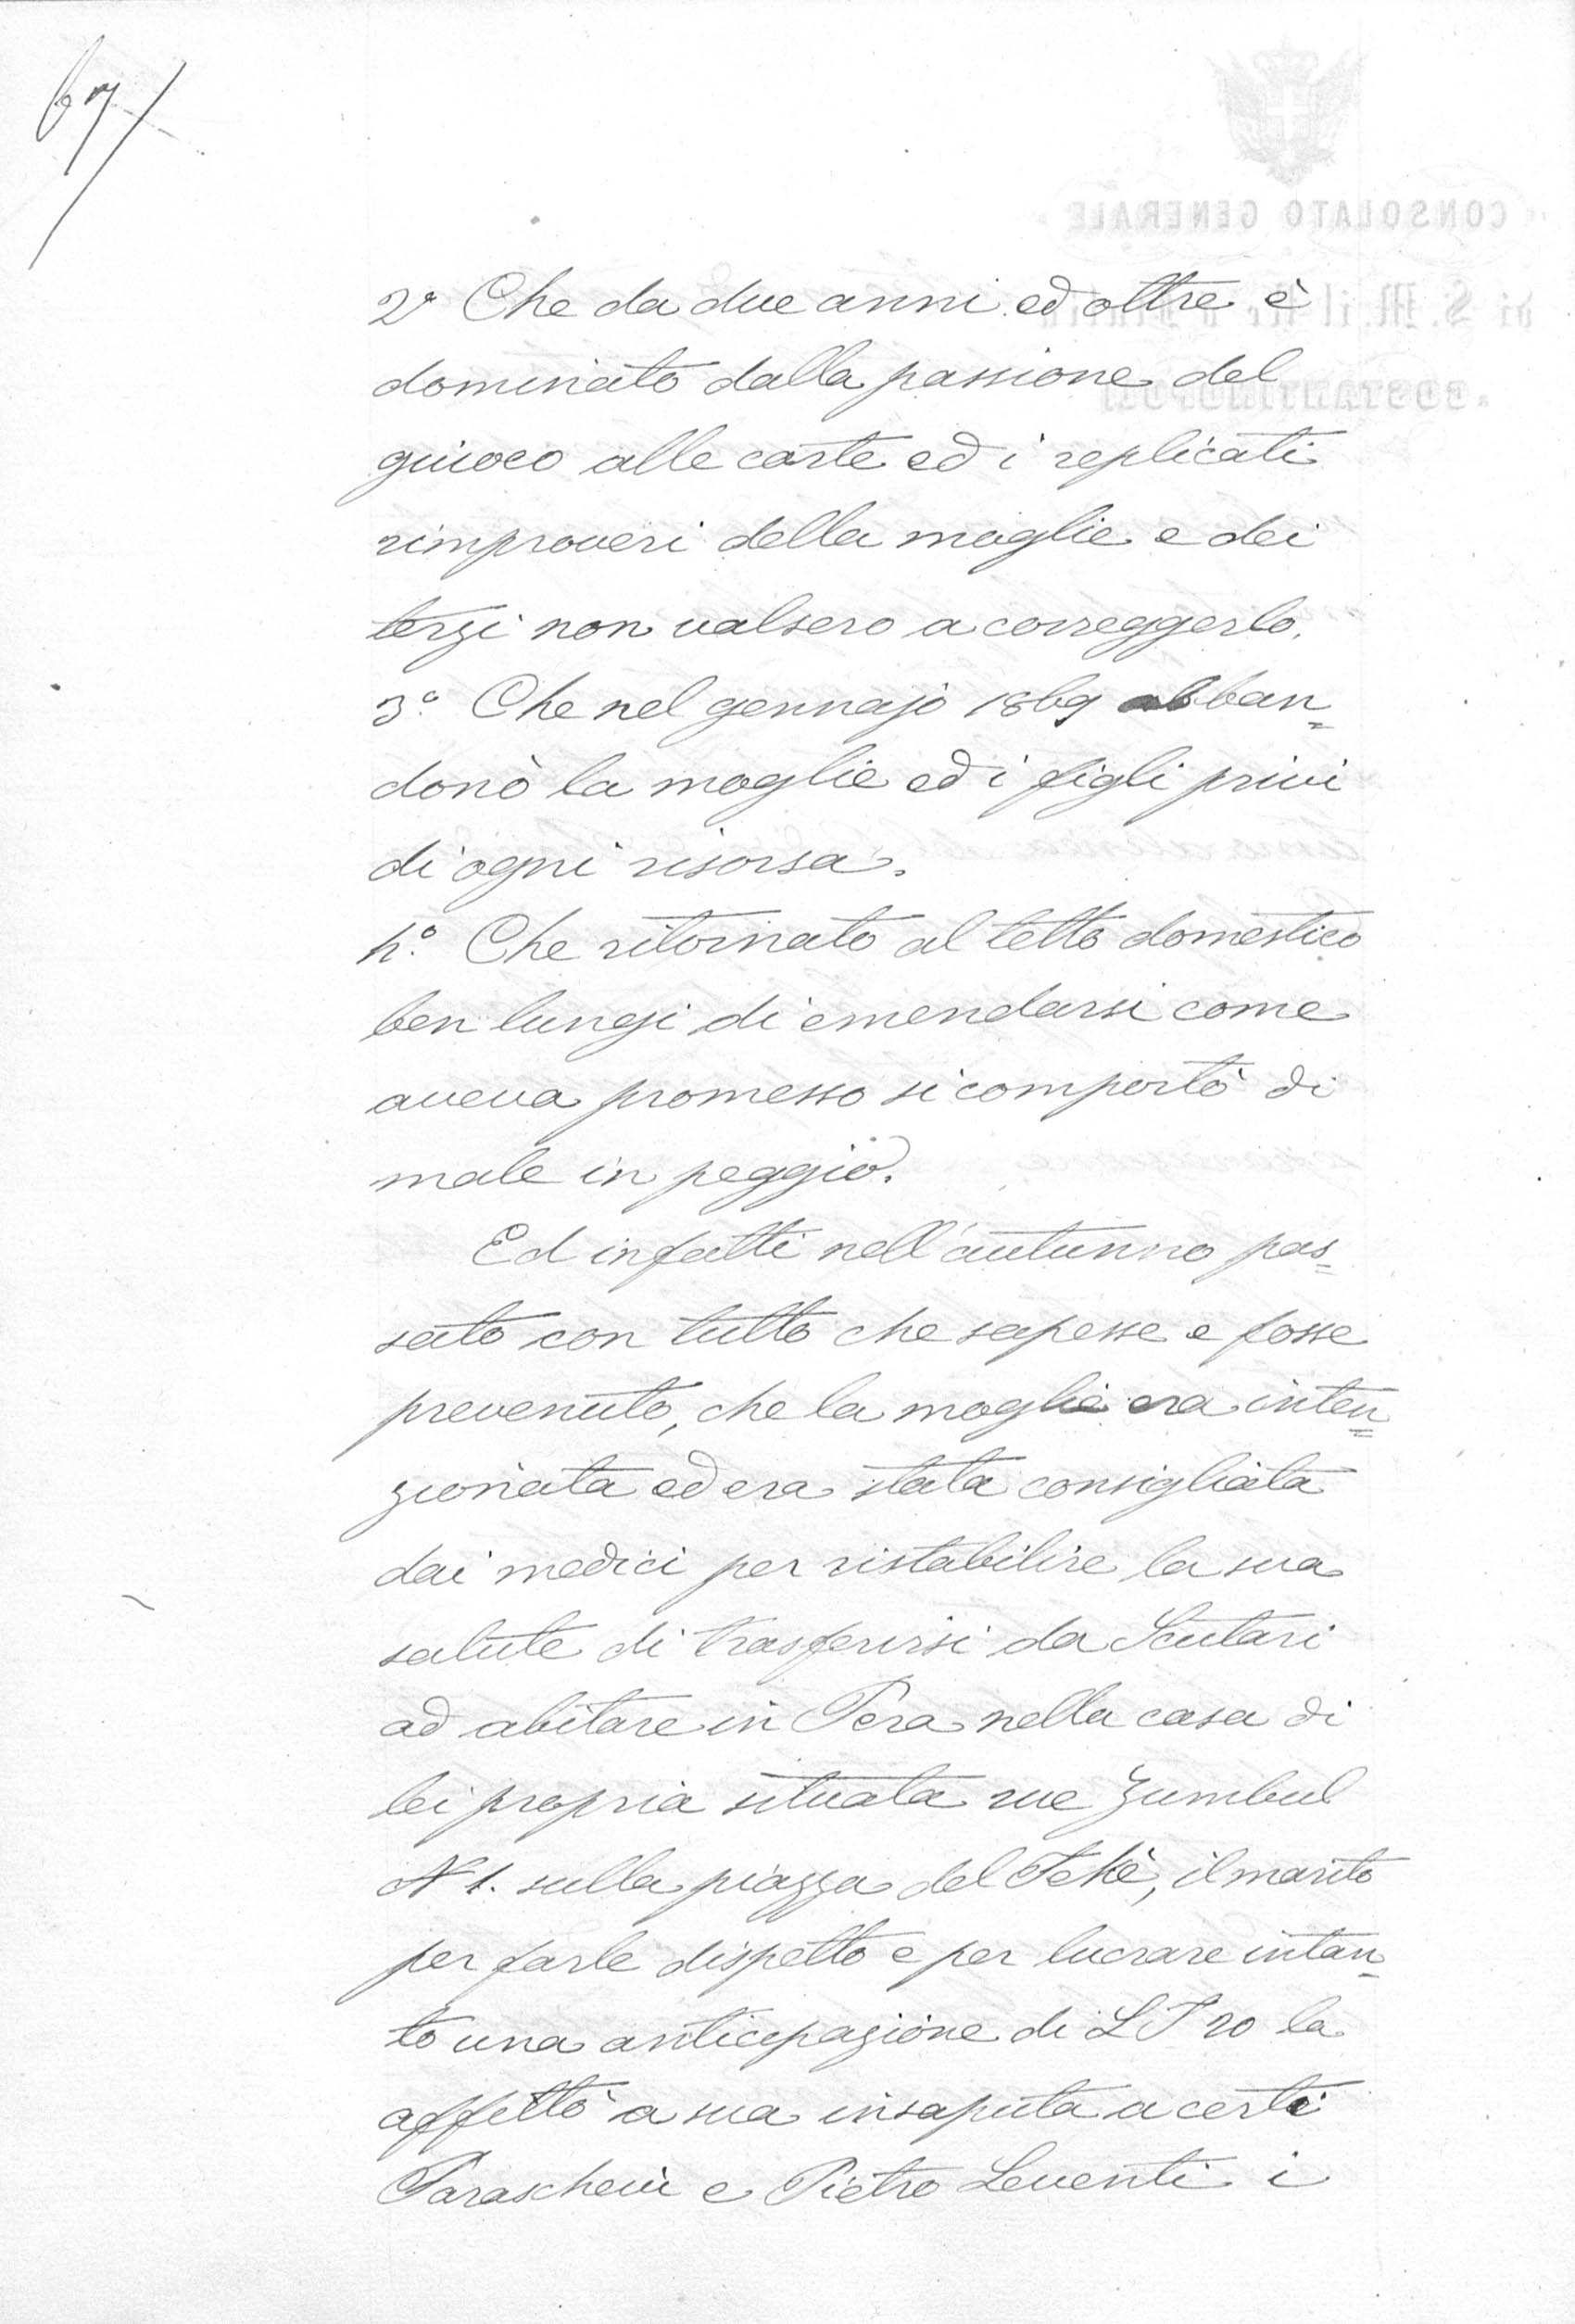 67
CONSOLATO GENERALE
di S. M. il Re d'Italia
COSTANTINOPOLI
2° Che da due anni ed oltre è
dominato dalla passione del
giuoco alle carte ed i replicati
rimproveri della moglie e dei
terzi non valsero a correggerlo.
3° Che nel gennajo 1869 abban=
donò la moglie ed i figli privi
di ogni risorsa.
4° Che ritornato al tetto domestico
ben lungi di emendarsi come
aveva promesso si comportò di
male in peggio.
Ed infatti nell'autunno pas=
sato con tutto che sapesse e fosse
prevenuto, che la moglie era inten=
zionata ed era stata consigliata
dai medici per ristabilire la sua
salute di trasferirsi da Scutari
ad abitare in Pera nella casa di
lei propria situata rue Zumbul
N 1. sulla piazza del Tekè, il marito
per farle dispetto e per lucrare intan=
to una anticipazione di LT 20 la
affittò a sua insaputa a certi
Paraschevi e Pietro Leventi i